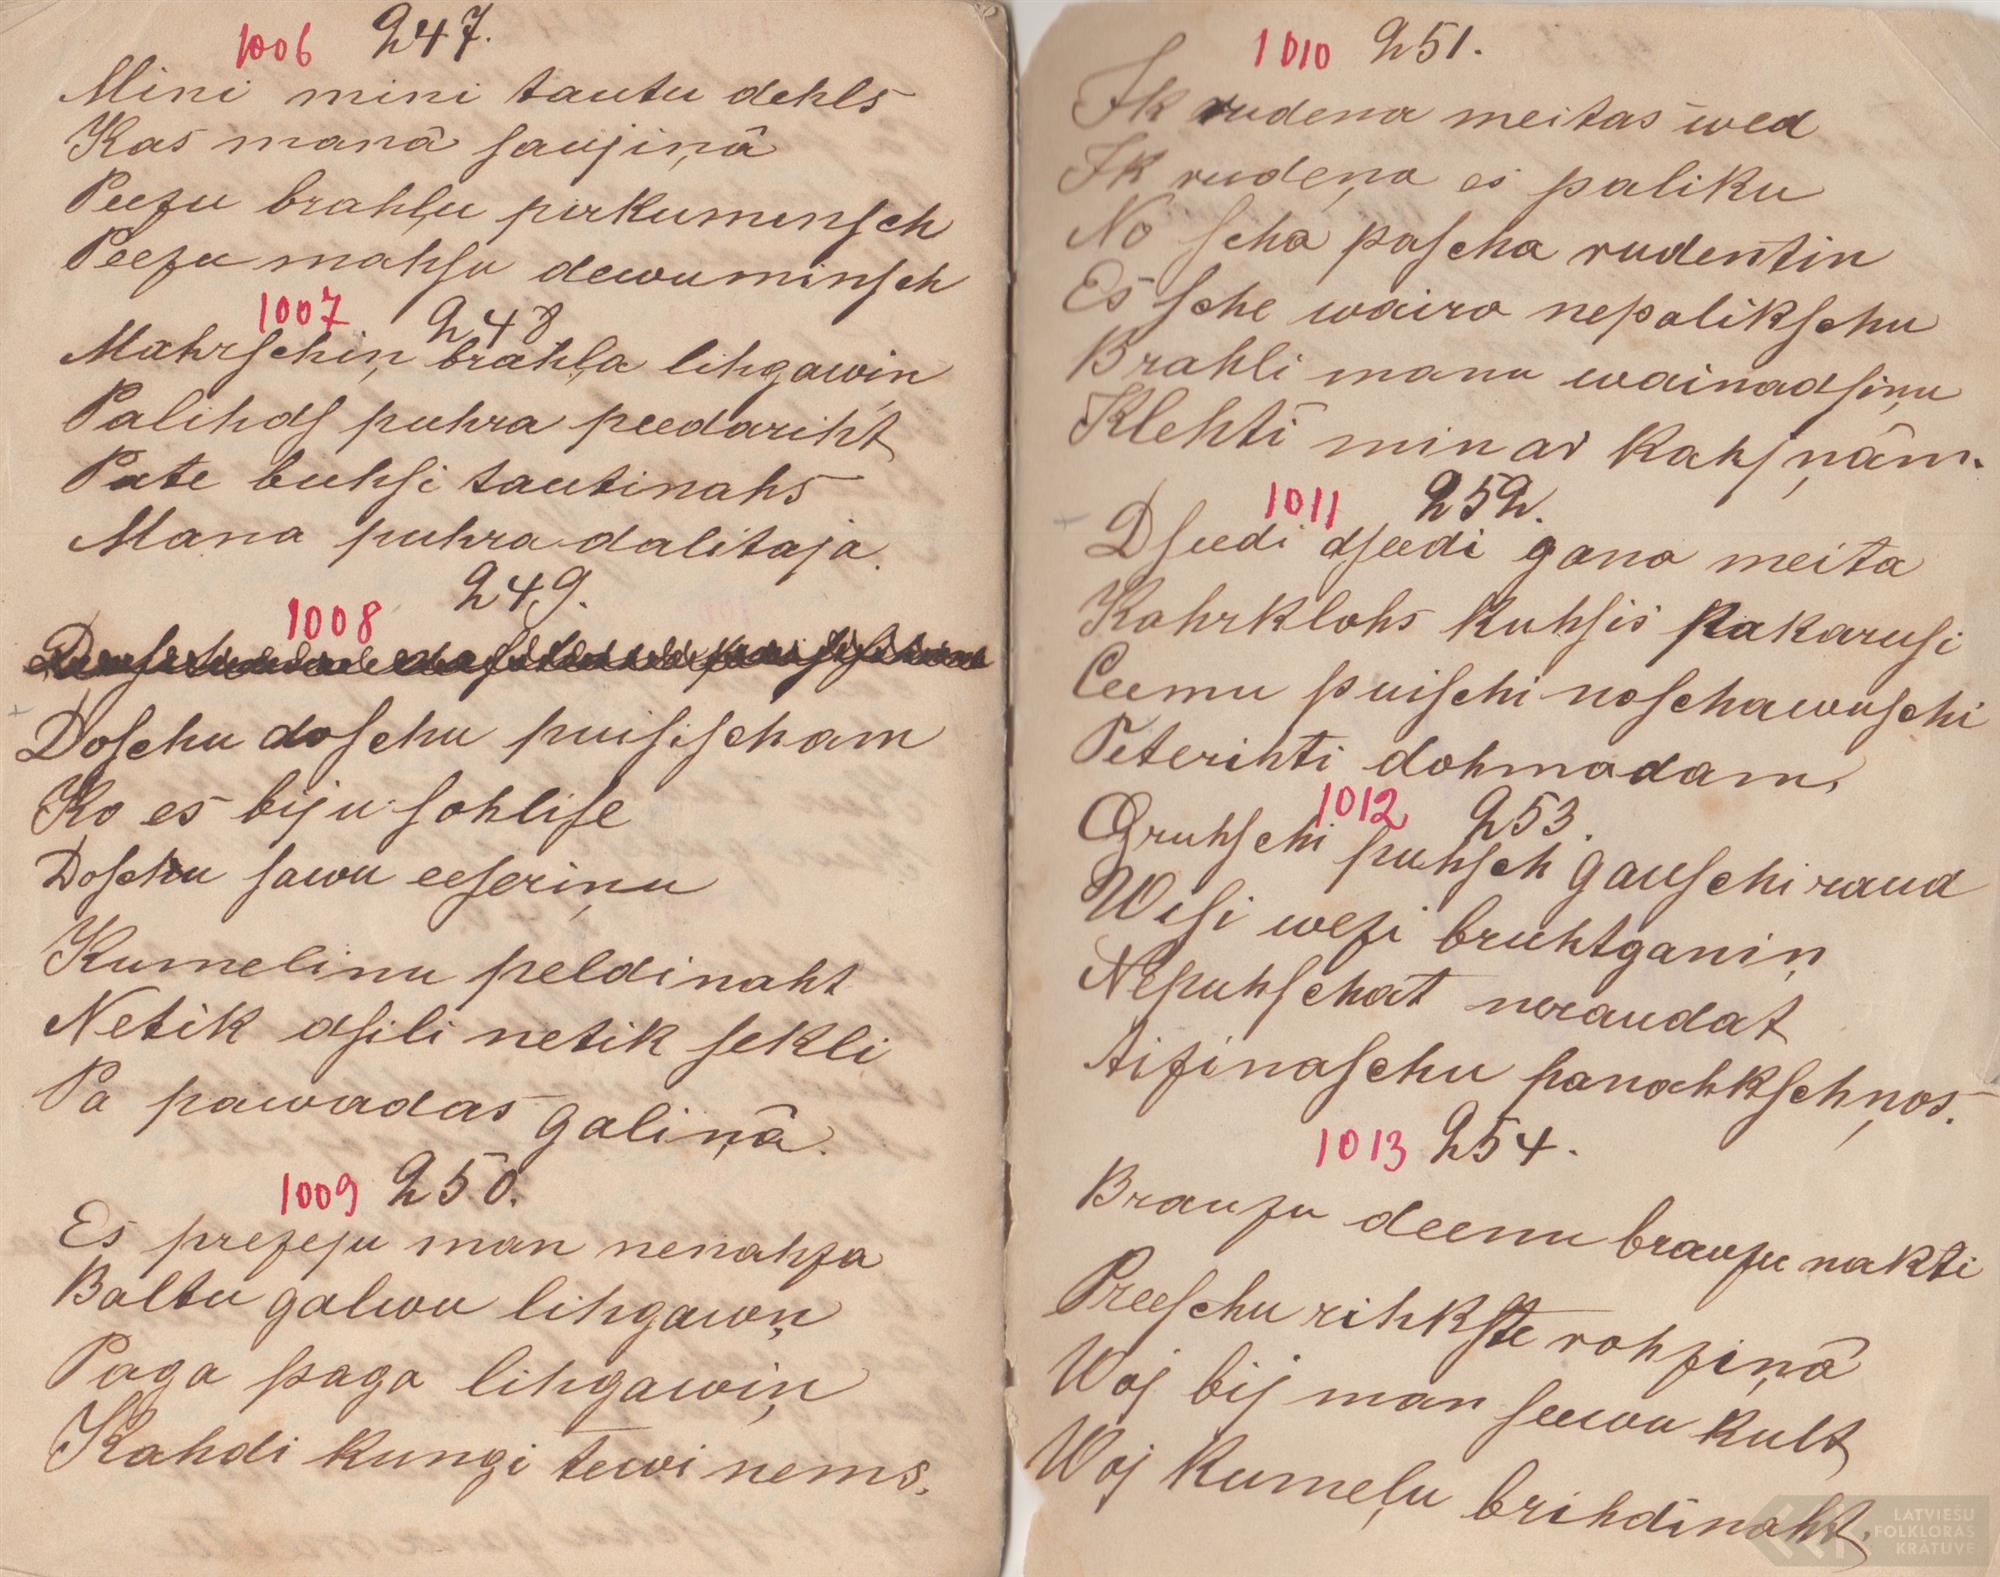 1006 247.
Mini mini tautu dehls
Kas manâ ſaujiņâ
Peezu brahļu pirkuminſch
Peezu mahsu dewuminſch
1007 248
Mahrſchiņ brahļa lihgawiņ
Palihdſ puhra peedariht
Pate buhſi tautinahs
Mana puhra dalitaja.
249.
1008
Doſchu doſchu puiſiſcham
Ko es biju ſohliſe
Doſchu ſawu eeſeriņu
Kumelinu peldinaht
Netik dſili netik ſekli
Pa pawadas galiņâ.
1009 250.
Es prezeju man nenahza
Baltu galwu lihgawņ
Paga paga lihgawiņ
Kahdi kungi tewi nems.
1010 251.
Ik rudena meitas wed
Ik rudeņa es paliku
No ſcha paſcha rudentin
Es ſche wairo nepalikſchu
Brahli manu wainadſiņu
Klehtî min ar kahjņâm.
1011 252.
Dſeedi dſeedi gana meita
Kahrklohs kuhſis pakaruſi
Ceemu puiſchi noſchawuſchi
Peterihti dohmadam,
1012 253.
Gruhſchi puhſch gauſchi raud
Wiſi wezi bruhtganiņ
Nepuhſchat neraudat
Aizinaſchu panahkſchņos.
1013 254.
Brauzu deenu brauzu nakti
Preeſchu rihkſte rohziņâ
Woj bij man ſeewu kult
Woj kumeļu brihdinaht.
LATVIEŠU
FOLKLORAS
KRĀTUVE